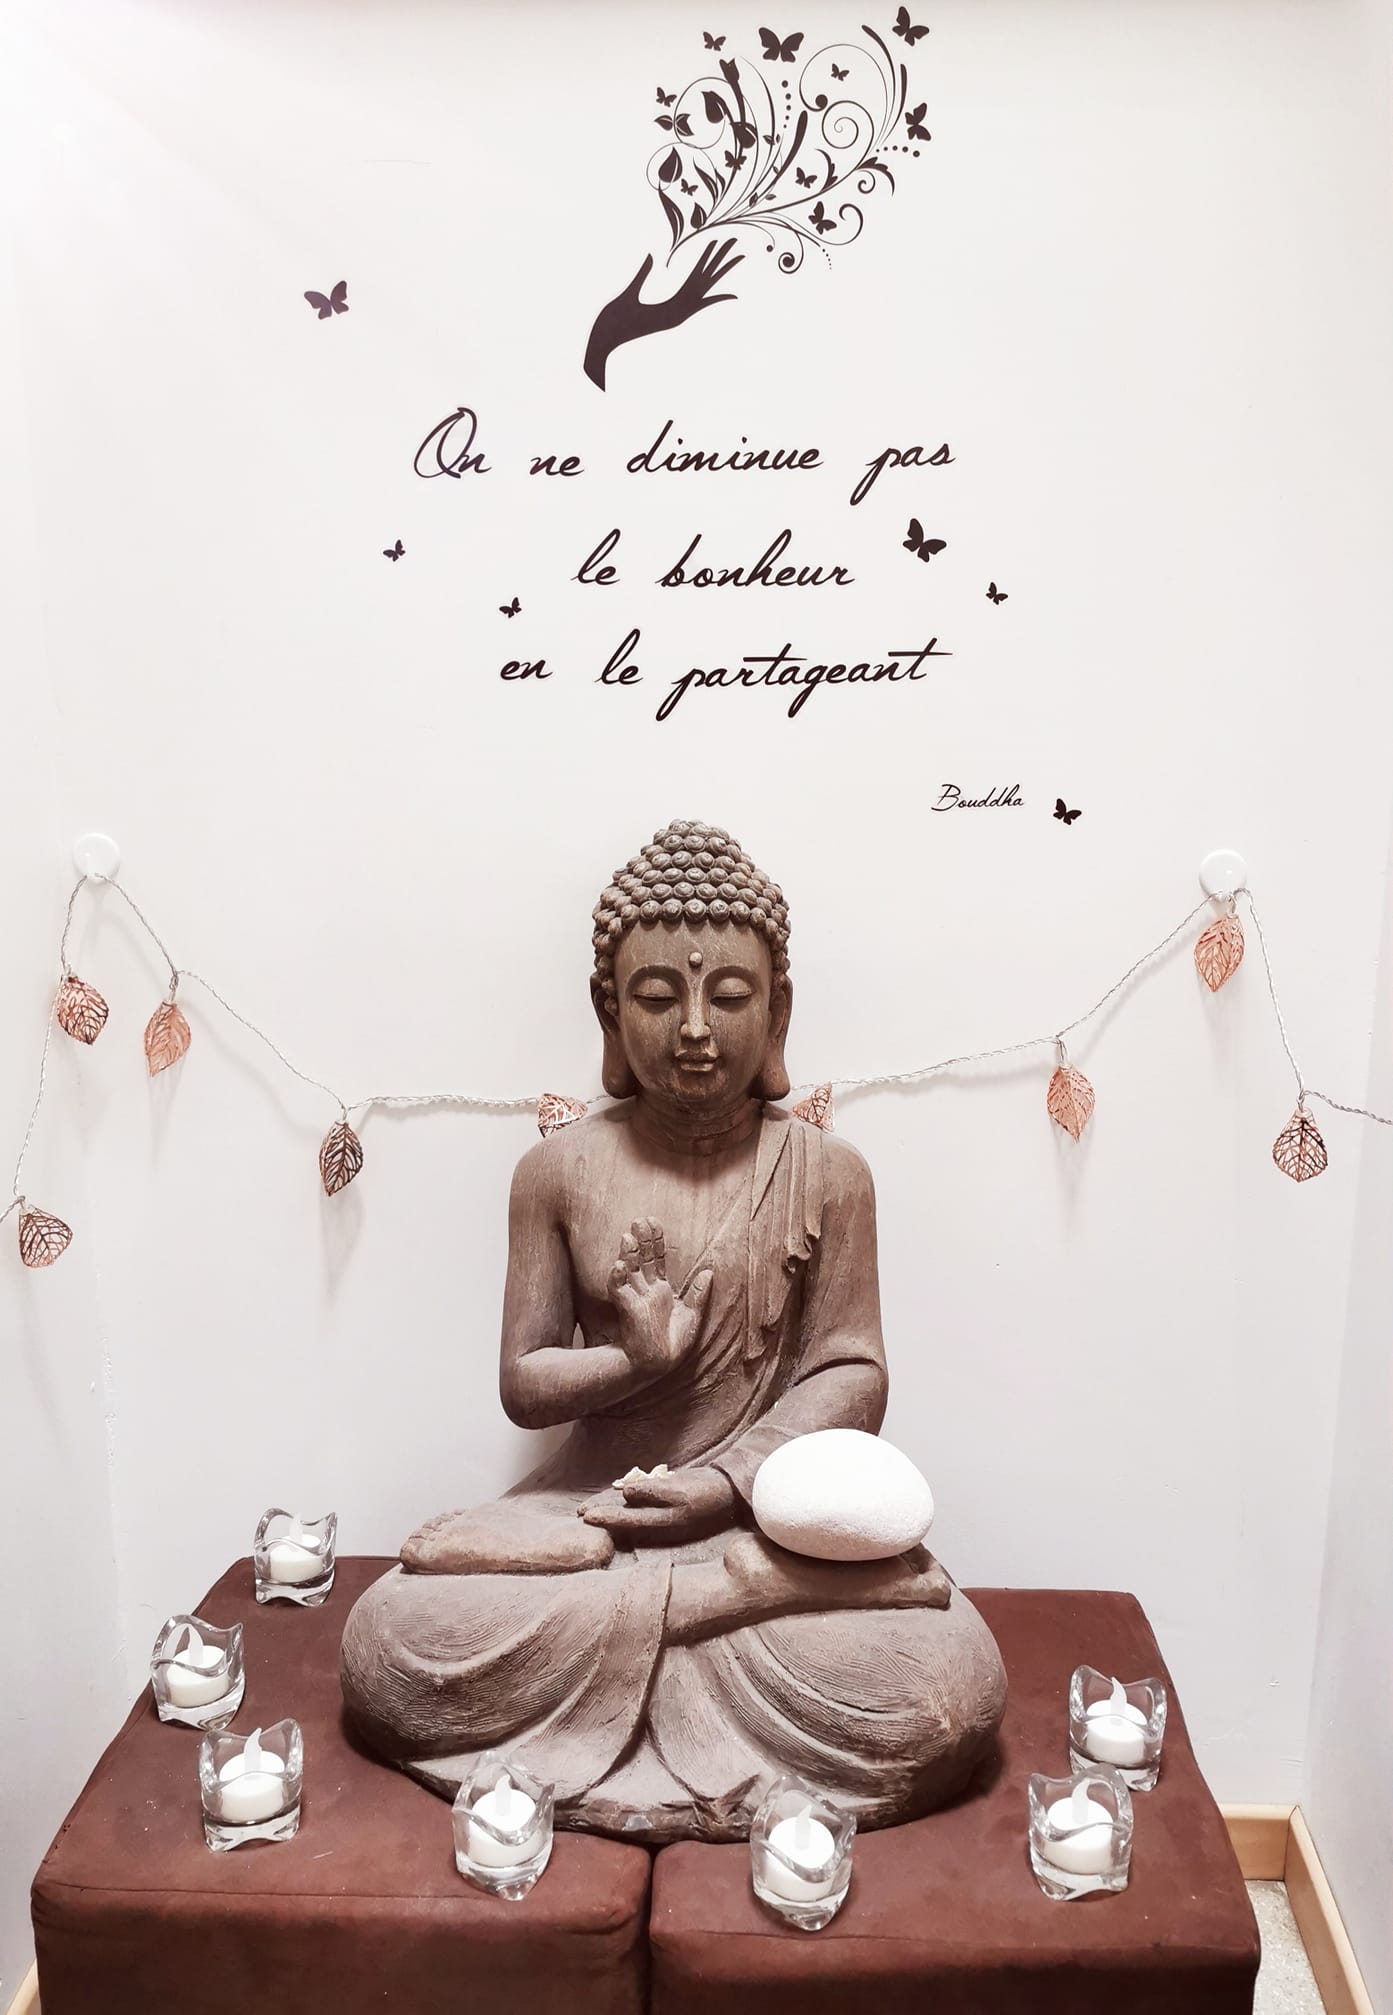 On ne diminue pas
le bonheur
en le partageant
Bouddha